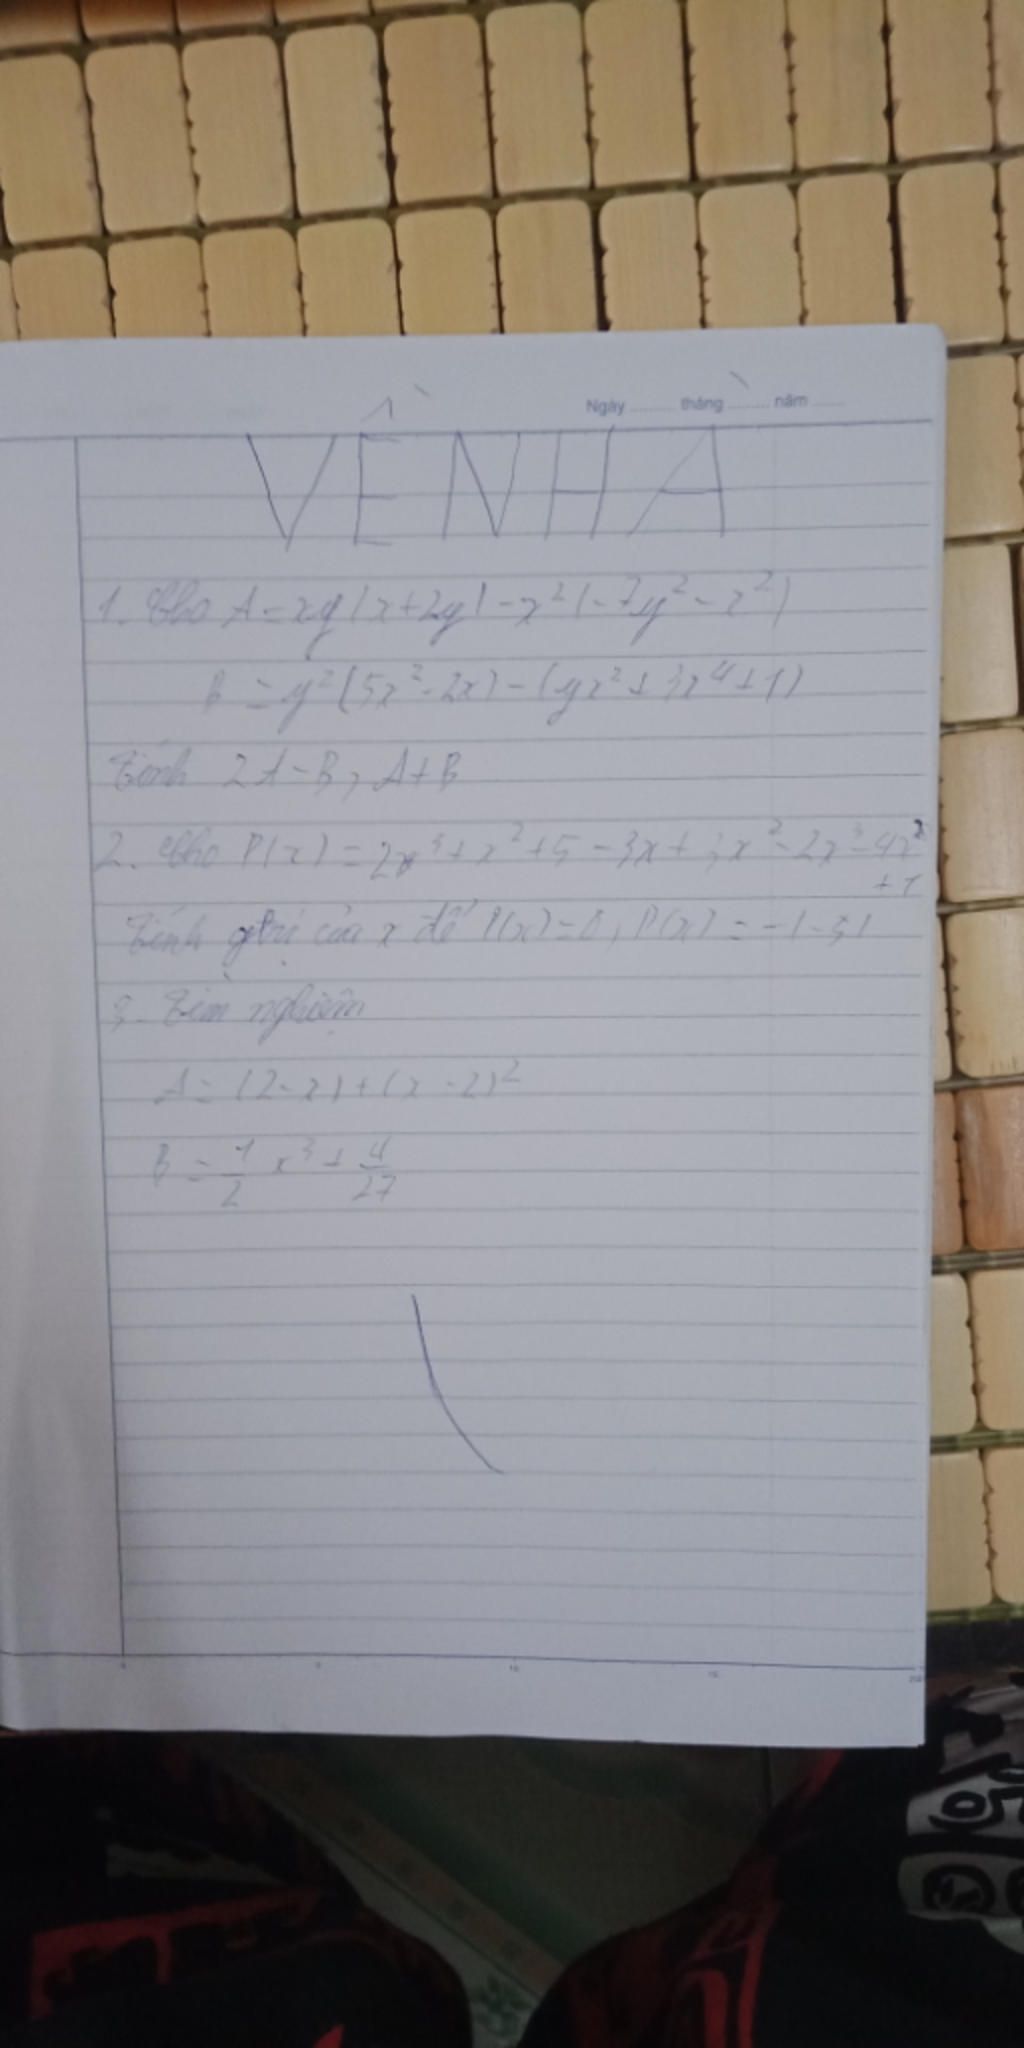 Ngày ........ tháng ........ năm ......
VỀ NHÀ
1. Cho A = xy(x+2y) - x²(-7y² - x²)
B = y²(5x² - 2x) - (yx² + 3x⁴ + 1)
Tính 2A - B, A + B
2. Cho P(x) = 2x³ + x² + 5 - 3x + 3x² - 2x³ - 4x²
+ 1
Tính gtrị của x để P(x) = 0, P(x) =
3. Tìm nghiệm
A = (2-x) + (x-2)²
B = 1/2 x³ + 4/27